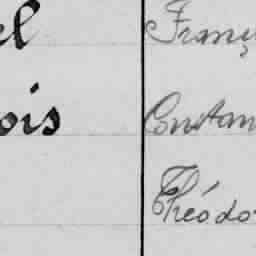 el Franç
ois Constan
Théodo